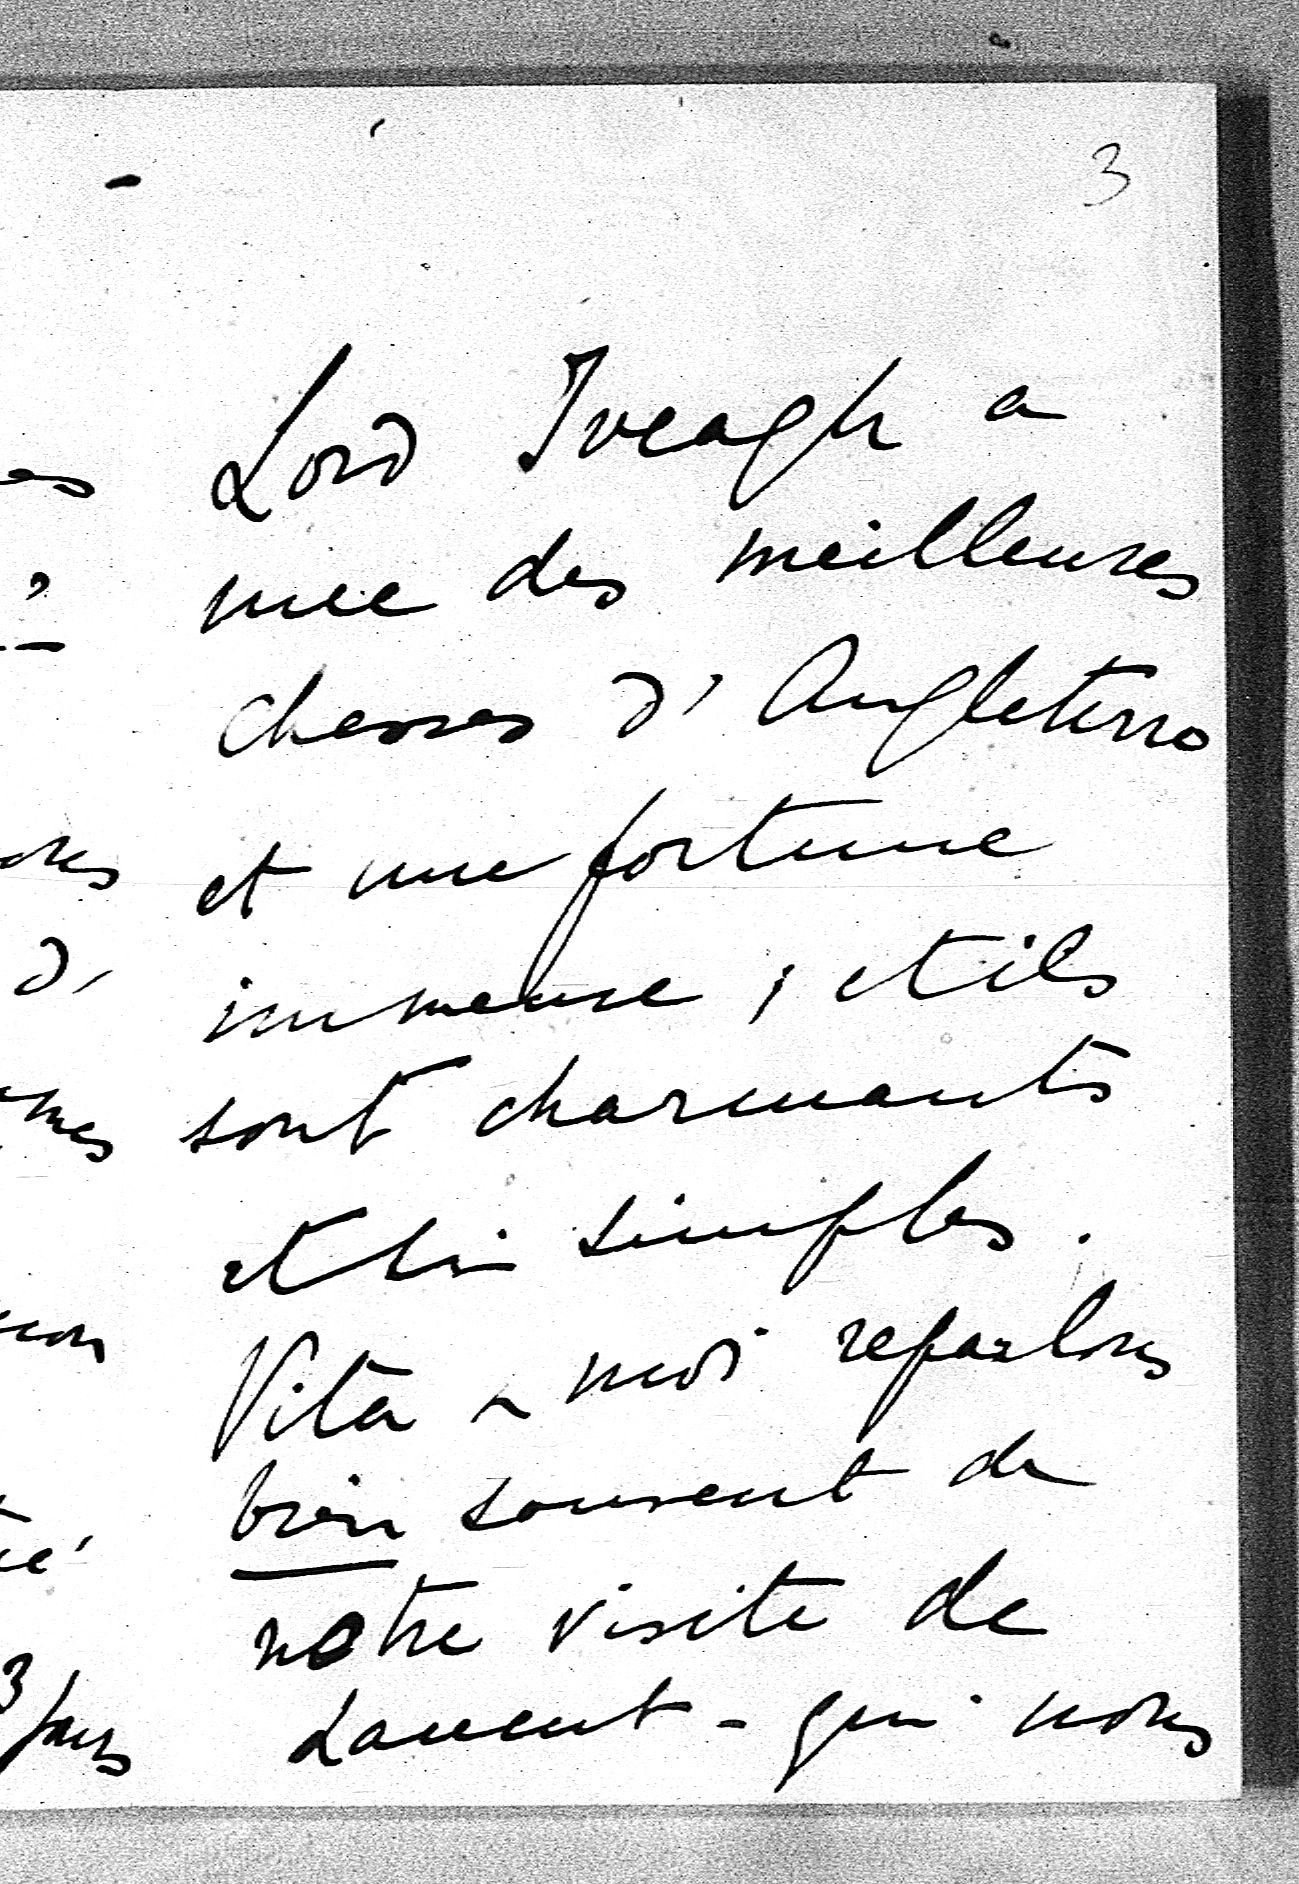 3
Lord Iveagh a
une des meilleures
chasses d'Angleterre
et une fortune
immense ; et ils
sont charmants
et si simples.
Vita & moi reparlons
bien souvent de
notre visite de
- qui nous
3 jours